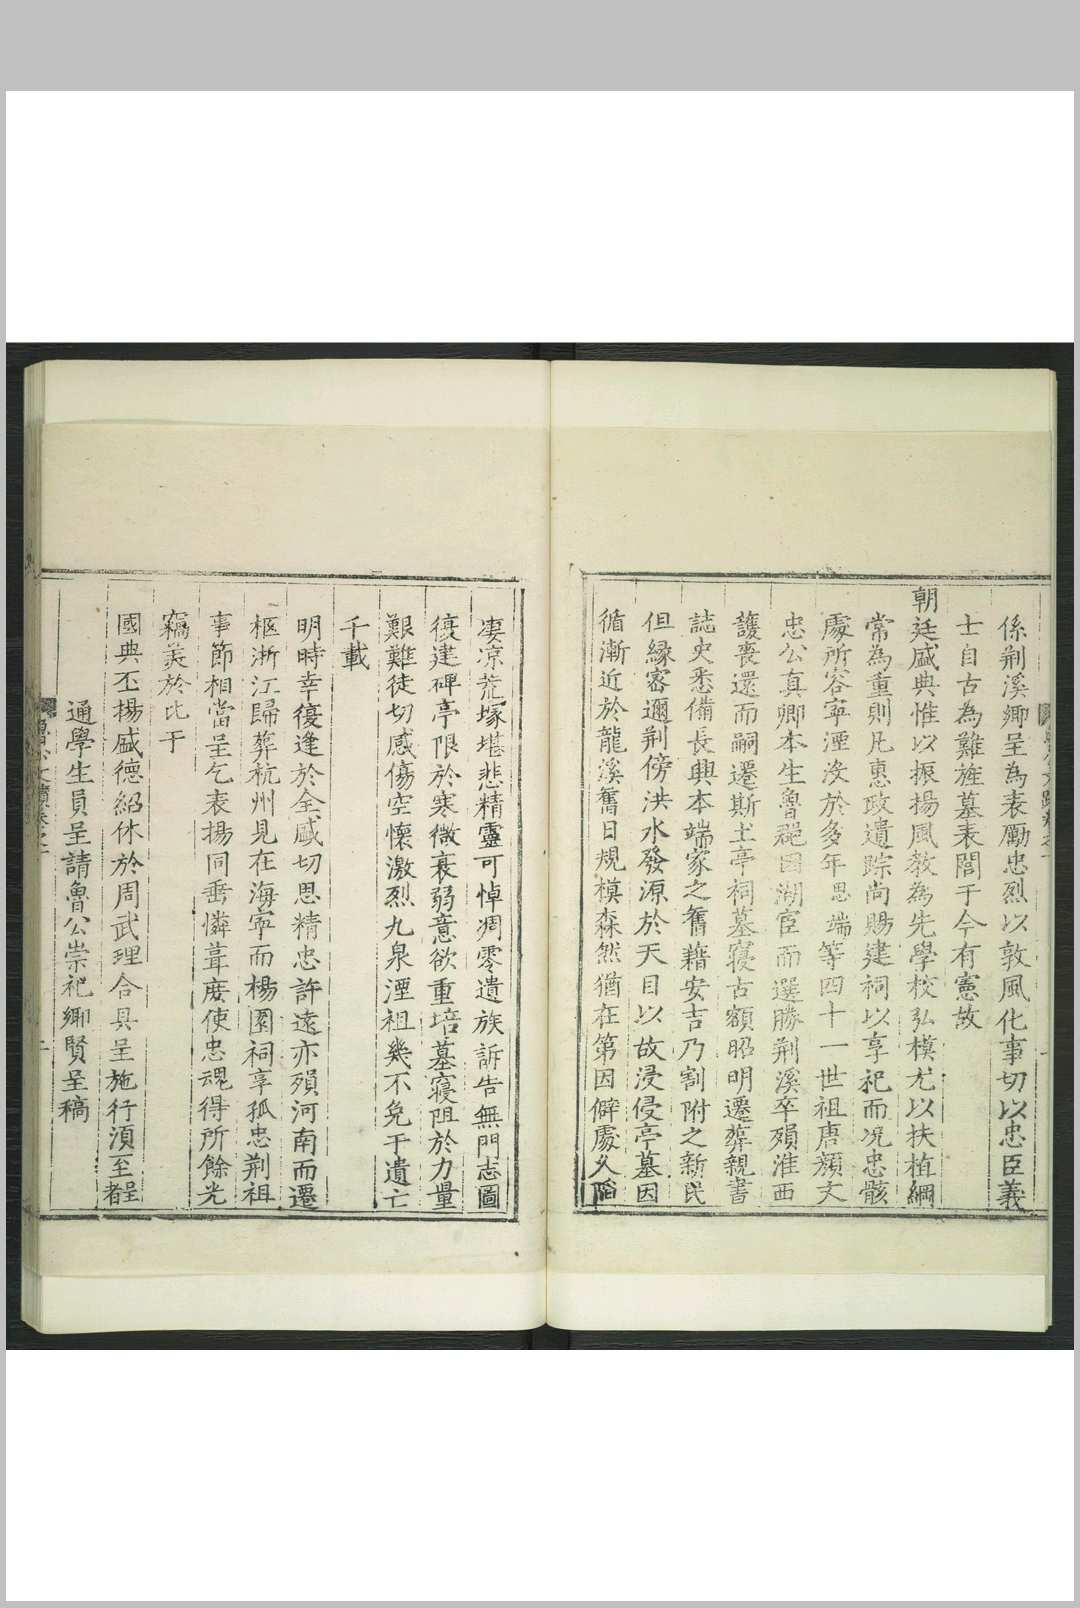 係荆溪卿呈為表勵忠烈以敦風化事切以忠臣義
士自古為難旌墓表閭于今有憲故
朝廷盛典惟以振揚風教為先學校弘模尤以扶植綱
常為重則凡惠政遺踪尚賜建祠以享祀而况忠骸
處所容寧湮没於多年思端等四十一世祖唐顏文
忠公真卿本生魯郡因湖宦而選勝荆溪卒殞淮西
護喪還而嗣遷斯土亭祠墓寢古額昭明遷塟親書
誌史悉備長興本端家之舊籍安吉乃割附之新民
但緣密邇荆傍洪水發源於天目以故浸侵亭墓因
循漸近於龍溪舊日規模森然猶在第因僻處久陷
凄凉荒塚堪悲精靈可悼凋零遺族訴告無門志圖
復建碑亭限於寒微衰弱意欲重培墓寢阻於力量
艱難徒切感傷空懷激烈九泉湮祖幾不免于遺亡
千載
明時幸復逢於全盛切思精忠許遠亦殞河南而遷
柩浙江歸葬杭州見在海寧而楊園祠享孤忠荆祖
事節相當呈乞表揚同垂憐葺庶使忠魂得所餘光
竊美於比干
國典丕揚盛德紹休於周武理合具呈施行湏至呈者
通學生員呈請魯公崇祀鄉賢呈稿